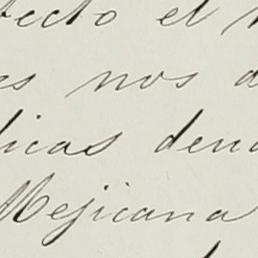 pecto el
es nos
licas den
Mejicana